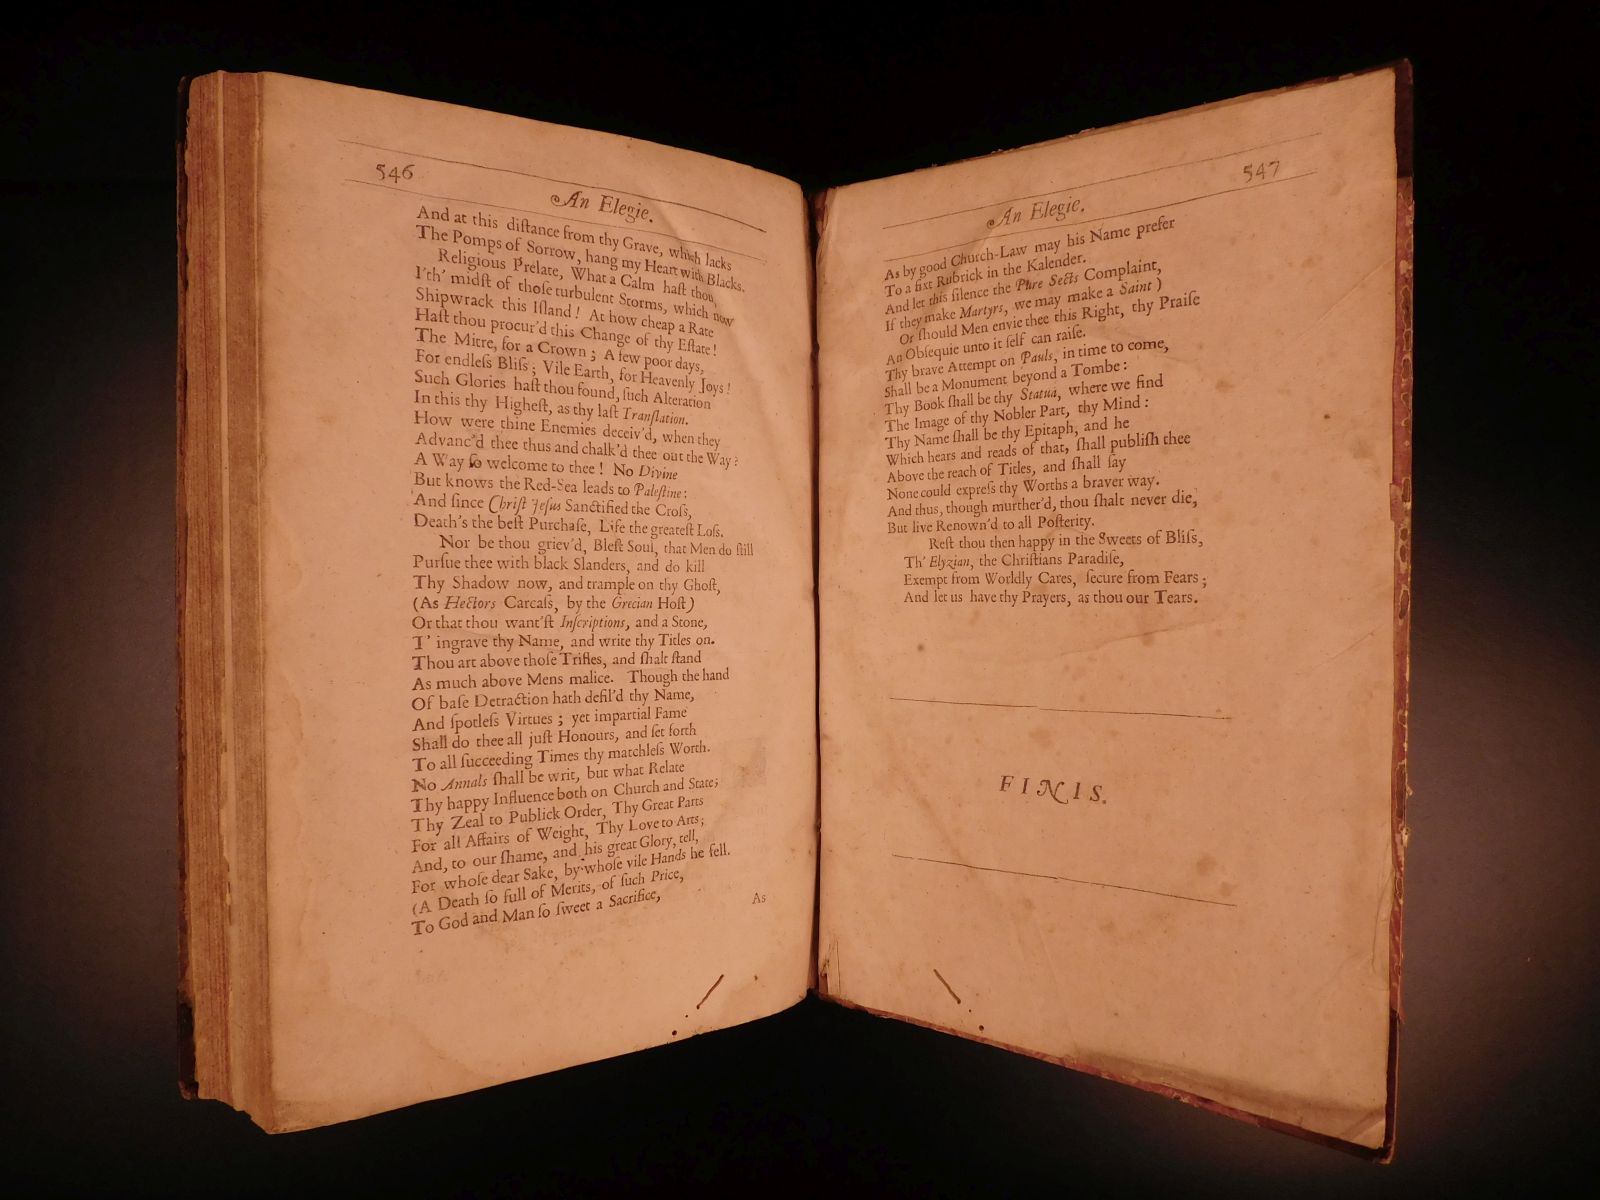 546
An Elegie.
And at this diſtance from thy Grave, which lacks
The Pomps of Sorrow, hang my Heart with Blacks.
Religious Prelate, What a Calm haſt thou,
I'th' midſt of thoſe turbulent Storms, which now
Shipwrack this Iſland! At how cheap a Rate
Haſt thou procur'd this Change of thy Eſtate!
The Mitre, for a Crown; A few poor days,
For endleſs Bliſs; Vile Earth, for Heavenly Joys!
Such Glories haſt thou found, ſuch Alteration
In this thy Higheſt, as thy laſt Tranſlation.
How were thine Enemies deceiv'd, when they
Advanc'd thee thus and chalk'd thee out the Way?
A Way ſo welcome to thee! No Divine
But knows the Red-Sea leads to Paleſtine:
And ſince Chriſt Jeſus Sanctified the Croſs,
Death's the beſt Purchaſe, Life the greateſt Loſs.
Nor be thou griev'd, Bleſt Soul, that Men do ſtill
Purſue thee with black Slanders, and do kill
Thy Shadow now, and trample on thy Ghoſt,
(As Hectors Carcaſs, by the Grecian Hoſt)
Or that thou want'ſt Inſcriptions, and a Stone,
T' ingrave thy Name, and write thy Titles on.
Thou art above thoſe Trifles, and ſhalt ſtand
As much above Mens malice. Though the hand
Of baſe Detraction hath defil'd thy Name,
And ſpotleſs Virtues; yet impartial Fame
Shall do thee all juſt Honours, and ſet forth
To all ſucceeding Times thy matchleſs Worth.
No Annals ſhall be writ, but what Relate
Thy happy Influence both on Church and State;
Thy Zeal to Publick Order, Thy Great Parts
For all Affairs of Weight, Thy Love to Arts;
And, to our ſhame, and his great Glory, tell,
For whoſe dear Sake, by whoſe vile Hands he fell.
(A Death ſo full of Merits, of ſuch Price,
To God and Man ſo ſweet a Sacrifice,
As
547
An Elegie.
As by good Church-Law may his Name prefer
To a fixt Rubrick in the Kalender.
And let this ſilence the Pure Sects Complaint,
If they make Martyrs, we may make a Saint)
Or ſhould Men envie thee this Right, thy Praiſe
An Obſequie unto it ſelf can raiſe.
Thy brave Attempt on Pauls, in time to come,
Shall be a Monument beyond a Tombe:
Thy Book ſhall be thy Statua, where we find
The Image of thy Nobler Part, thy Mind:
Thy Name ſhall be thy Epitaph, and he
Which hears and reads of that, ſhall publiſh thee
Above the reach of Titles, and ſhall ſay
None could expreſs thy Worths a braver way.
And thus, though murther'd, thou ſhalt never die,
But live Renown'd to all Poſterity.
Reſt thou then happy in the Sweets of Bliſs,
Th' Elyzian, the Chriſtians Paradiſe,
Exempt from Worldly Cares, ſecure from Fears;
And let us have thy Prayers, as thou our Tears.
FINIS.